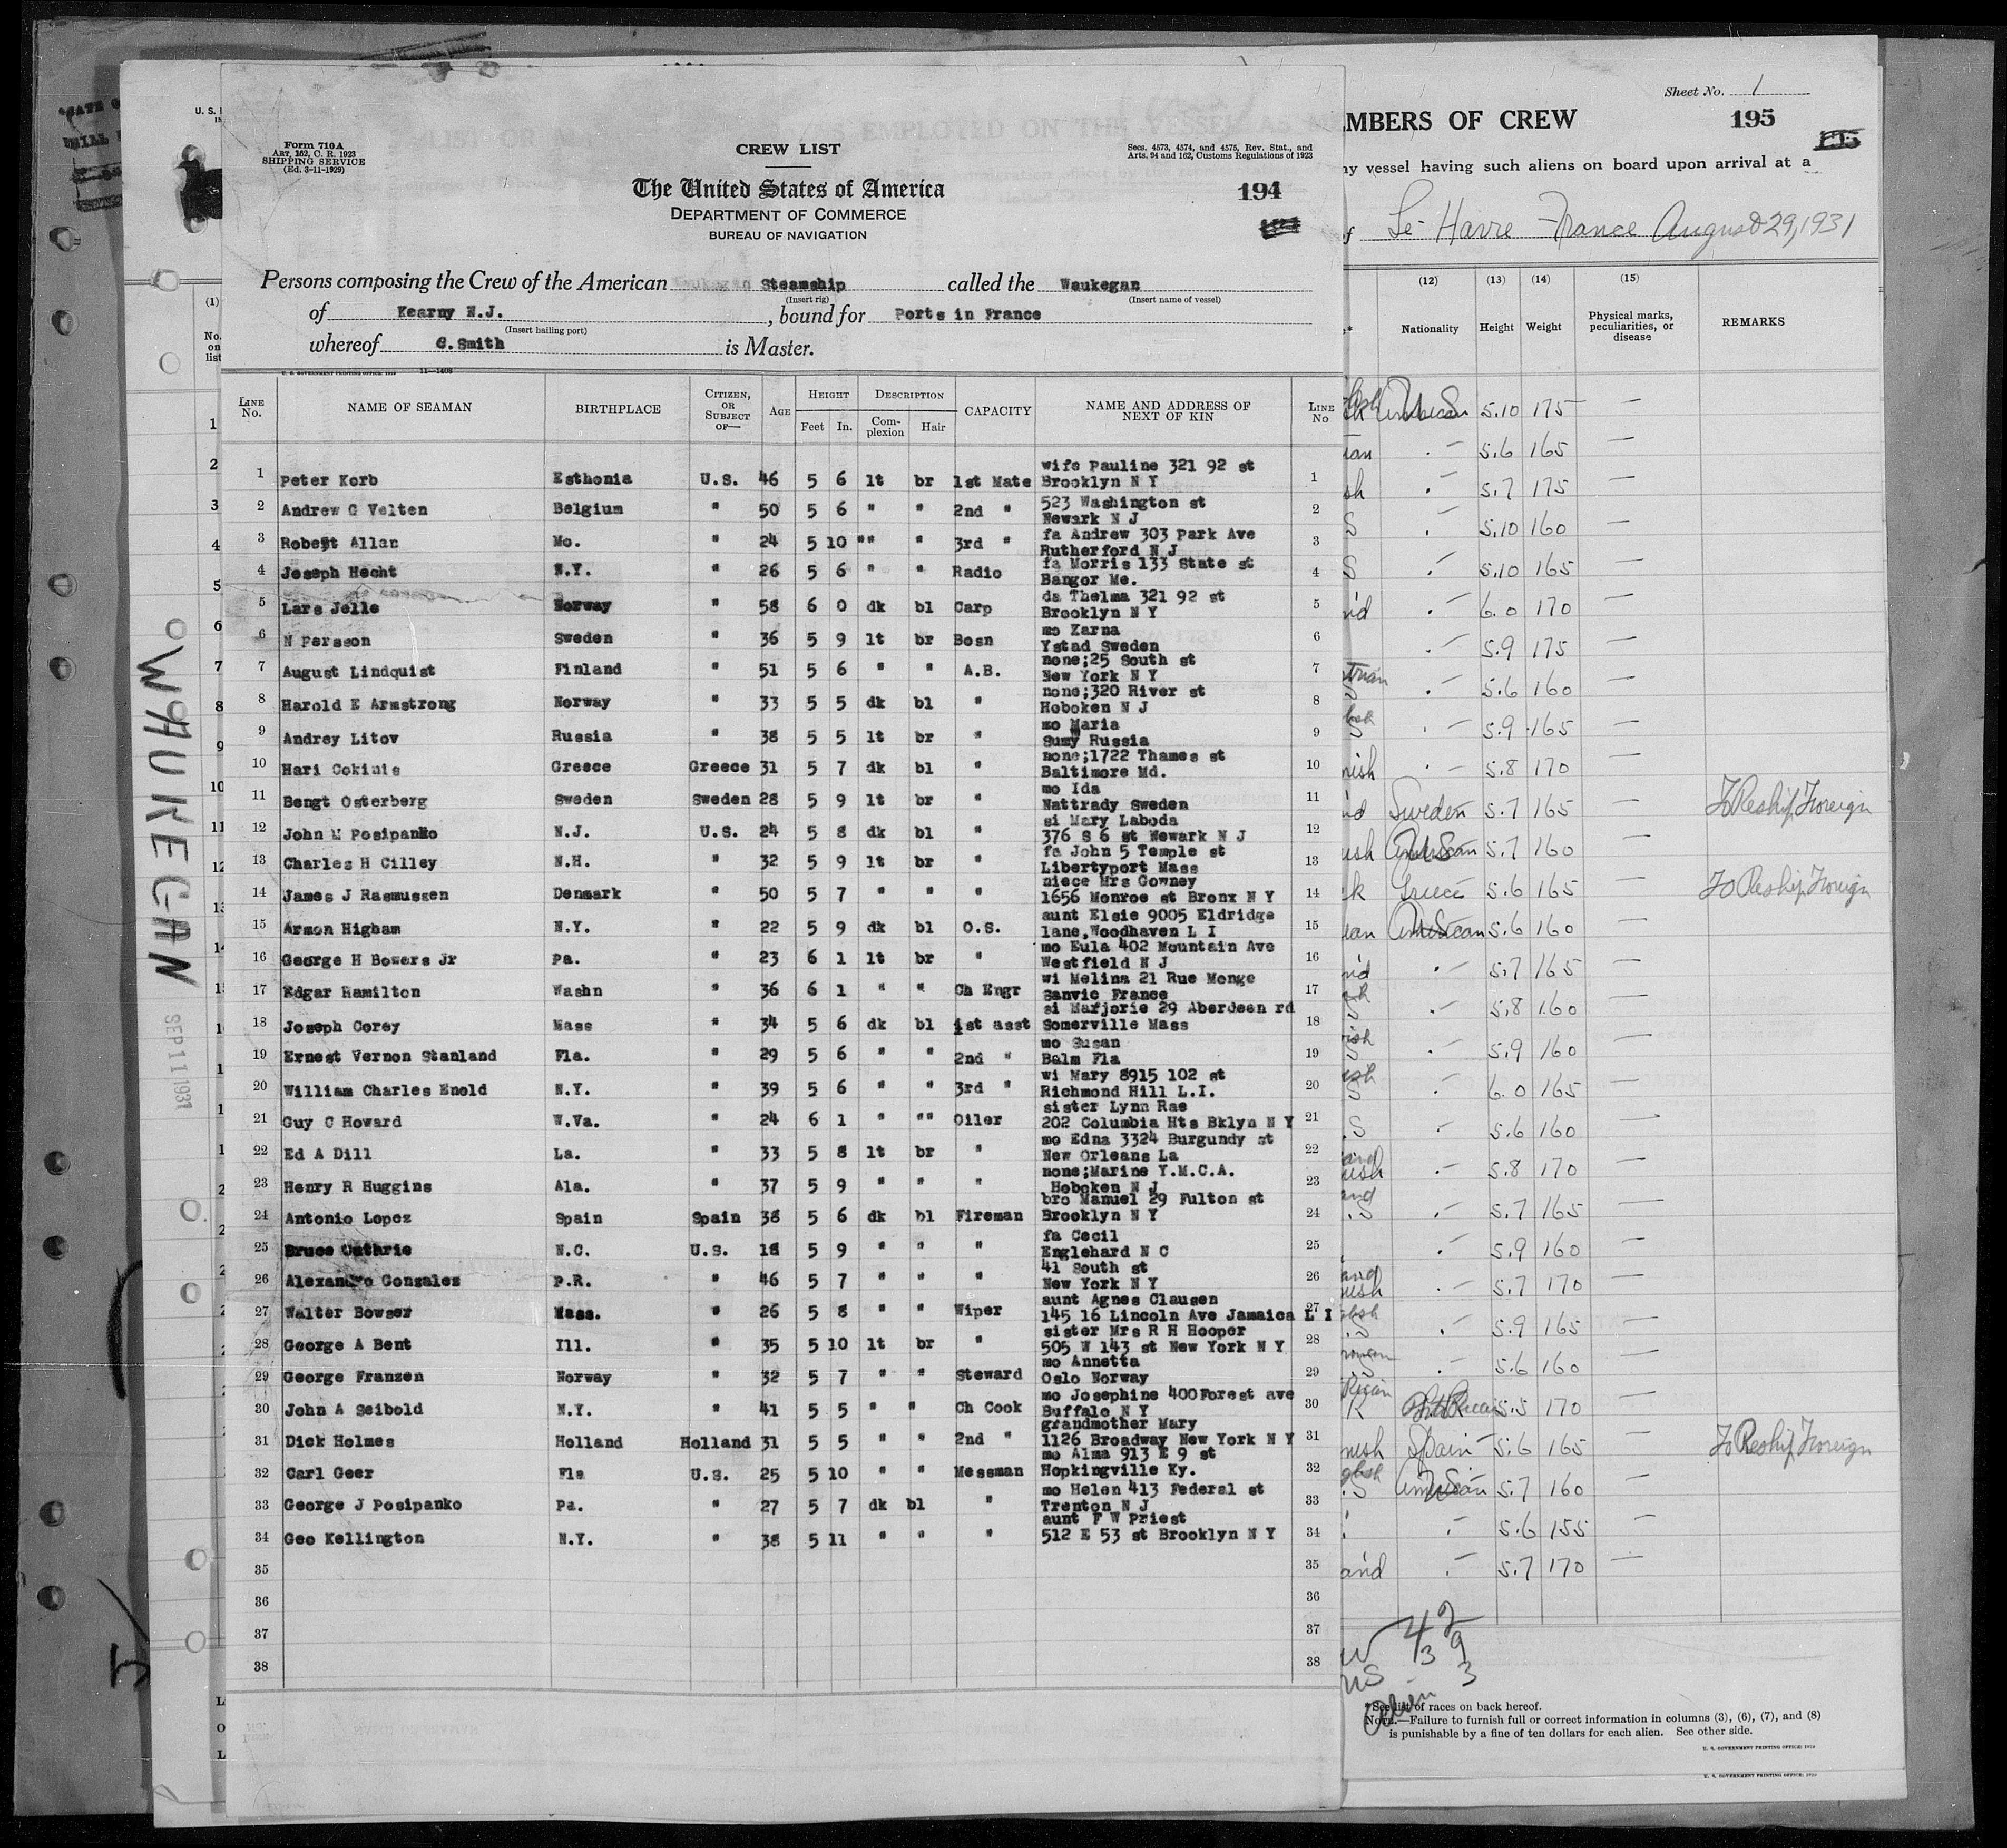 Form 710A
ART. 162, C. R. 1923
SHIPPING SERVICE
(Ed. 3-11-1929)
CREW LIST
Secs. 4573, 4574, and 4575, Rev. Stat., and
Arts. 94 and 162, Customs Regulations of 1923
The United States of America
194
DEPARTMENT OF COMMERCE
BUREAU OF NAVIGATION
Persons composing the Crew of the American Steamship called the Waukegan
(Insert rig) (Insert name of vessel)
of Kearny N.J. , bound for Ports in France
(Insert hailing port)
whereof C.Smith is Master.
U. S. GOVERNMENT PRINTING OFFICE: 1929 11—1408
LINE No. NAME OF SEAMAN BIRTHPLACE CITIZEN, OR SUBJECT OF— AGE HEIGHT Feet In. DESCRIPTION Complexion Hair CAPACITY NAME AND ADDRESS OF NEXT OF KIN LINE No
1 Peter Korb Esthonia U.S. 46 5 6 lt br 1st Mate wife Pauline 321 92 st Brooklyn N Y 1
2 Andrew G Velten Belgium " 50 5 6 " " 2nd " 523 Washington st Newark N J 2
3 Robert Allan Mo. " 24 5 10 "" " 3rd " fa Andrew 303 Park Ave Rutherford N J 3
4 Joseph Hecht N.Y. " 26 5 6 " " Radio fa Morris 133 State st Bangor Me. 4
5 Lars Jelle Norway " 58 6 0 dk bl Carp da Thelma 321 92 st Brooklyn N Y 5
6 N Persson Sweden " 36 5 9 lt br Bosn mo Karna Ystad Sweden 6
7 August Lindquist Finland " 51 5 6 " " A.B. none;25 South st New York N Y 7
8 Harold E Armstrong Norway " 33 5 5 dk bl " none;320 River st Hoboken N J 8
9 Andrey Litov Russia " 38 5 5 lt br " mo Maria Sumy Russia 9
10 Hari Cokinis Greece Greece 31 5 7 dk bl " none;1722 Thames st Baltimore Md. 10
11 Bengt Osterberg Sweden Sweden 28 5 9 lt br " mo Ida Nattrady Sweden 11
12 John M Posipanko N.J. U.S. 24 5 8 dk bl " si Mary Laboda 376 S 6 st Newark N J 12
13 Charles H Cilley N.H. " 32 5 9 lt br " fa John 5 Temple st Libertyport Mass 13
14 James J Rasmussen Denmark " 50 5 7 " " " niece Mrs Gowney 1656 Monroe st Bronx N Y 14
15 Armon Higham N.Y. " 22 5 9 dk bl O.S. aunt Elsie 9005 Eldridge lane,Woodhaven L I 15
16 George H Bowers Jr Pa. " 23 6 1 lt br " mo Eula 402 Mountain Ave Westfield N J 16
17 Edgar Hamilton Washn " 36 6 1 " " Ch Engr wi Melina 21 Rue Monge Sanvic France 17
18 Joseph Corey Mass " 34 5 6 dk bl 1st asst si Marjorie 29 Aberdeen rd Somerville Mass 18
19 Ernest Vernon Stanland Fla. " 29 5 6 " " 2nd " mo Susan Balm Fla 19
20 William Charles Enold N.Y. " 39 5 6 " " 3rd " wi Mary 8915 102 st Richmond Hill L.I. 20
21 Guy C Howard W.Va. " 24 6 1 " "" Oiler sister Lynn Rae 202 Columbia Hts Bklyn N Y 21
22 Ed A Dill La. " 33 5 8 lt br " mo Edna 3324 Burgundy st New Orleans La 22
23 Henry R Huggins Ala. " 37 5 9 " " " none;Marine Y.M.C.A. Hoboken N J 23
24 Antonio Lopez Spain Spain 38 5 6 dk bl Fireman bro Manuel 29 Fulton st Brooklyn N Y 24
25 Bruce Guthrie N.C. U.S. 18 5 9 " " " fa Cecil Englehard N C 25
26 Alexandro Gonsales P.R. " 46 5 7 " " " 41 South st New York N Y 26
27 Walter Bowser Mass. " 26 5 8 " " Wiper aunt Agnes Clausen 145 16 Lincoln Ave Jamaica L I 27
28 George A Bent Ill. " 35 5 10 lt br " sister Mrs R H Hooper 505 W 143 st New York N Y 28
29 George Franzen Norway " 32 5 7 " " Steward mo Annetta Oslo Norway 29
30 John A Seibold N.Y. " 41 5 5 " " Ch Cook mo Josephine 400Forest ave Buffalo N Y 30
31 Dick Holmes Holland Holland 31 5 5 " " 2nd " grandmother Mary 1126 Broadway New York N Y 31
32 Carl Geer Fla U.S. 25 5 10 " " Messman mo Alma 913 E 9 st Hopkingville Ky. 32
33 George J Posipanko Pa. " 27 5 7 dk bl " mo Helen 413 Federal st Trenton N J 33
34 Geo Kellington N.Y. " 38 5 11 " " " aunt F W Priest 512 E 53 st Brooklyn N Y 34
35 35
36 36
37 37
38 38
WAUKEGAN
SEP 11 1931
U. S.
(1)
No. on list
Sheet No. 1
MBERS OF CREW 195
ny vessel having such aliens on board upon arrival at a
f Le Havre France August 29, 1931
(12) (13) (14) (15)
Nationality Height Weight Physical marks, peculiarities, or disease REMARKS
5.10 175 —
5.6 165 —
5.7 175 —
5.10 160 —
5.10 165 —
6.0 170 —
5.9 175 —
5.6 160 —
5.9 165 —
5.8 170 —
Sweden 5.7 165 — To Reship Foreign
5.7 160 —
Greece 5.6 165 — To Reship Foreign
5.6 160 —
5.7 165 —
5.8 160 —
5.9 160 —
6.0 165 —
5.6 160 —
5.8 170 —
5.7 165 —
5.9 160 —
5.7 170 —
5.9 165 —
5.6 160 —
5.5 170 —
Spain 5.6 165 — To Reship Foreign
5.7 160 —
5.6 155 —
5.7 170 —
42
39
3
Alien
*See list of races on back hereof.
NOTE.—Failure to furnish full or correct information in columns (3), (6), (7), and (8)
is punishable by a fine of ten dollars for each alien. See other side.
U. S. GOVERNMENT PRINTING OFFICE: 1929
U. S. GOVERNMENT PRINTING OFFICE: 1929